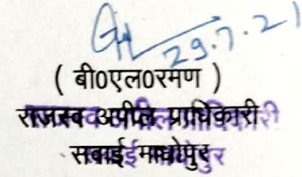 29.7.21
( बी0एल0रमण )
राजस्व अपील प्राधिकारी
सवाई माधोपुर